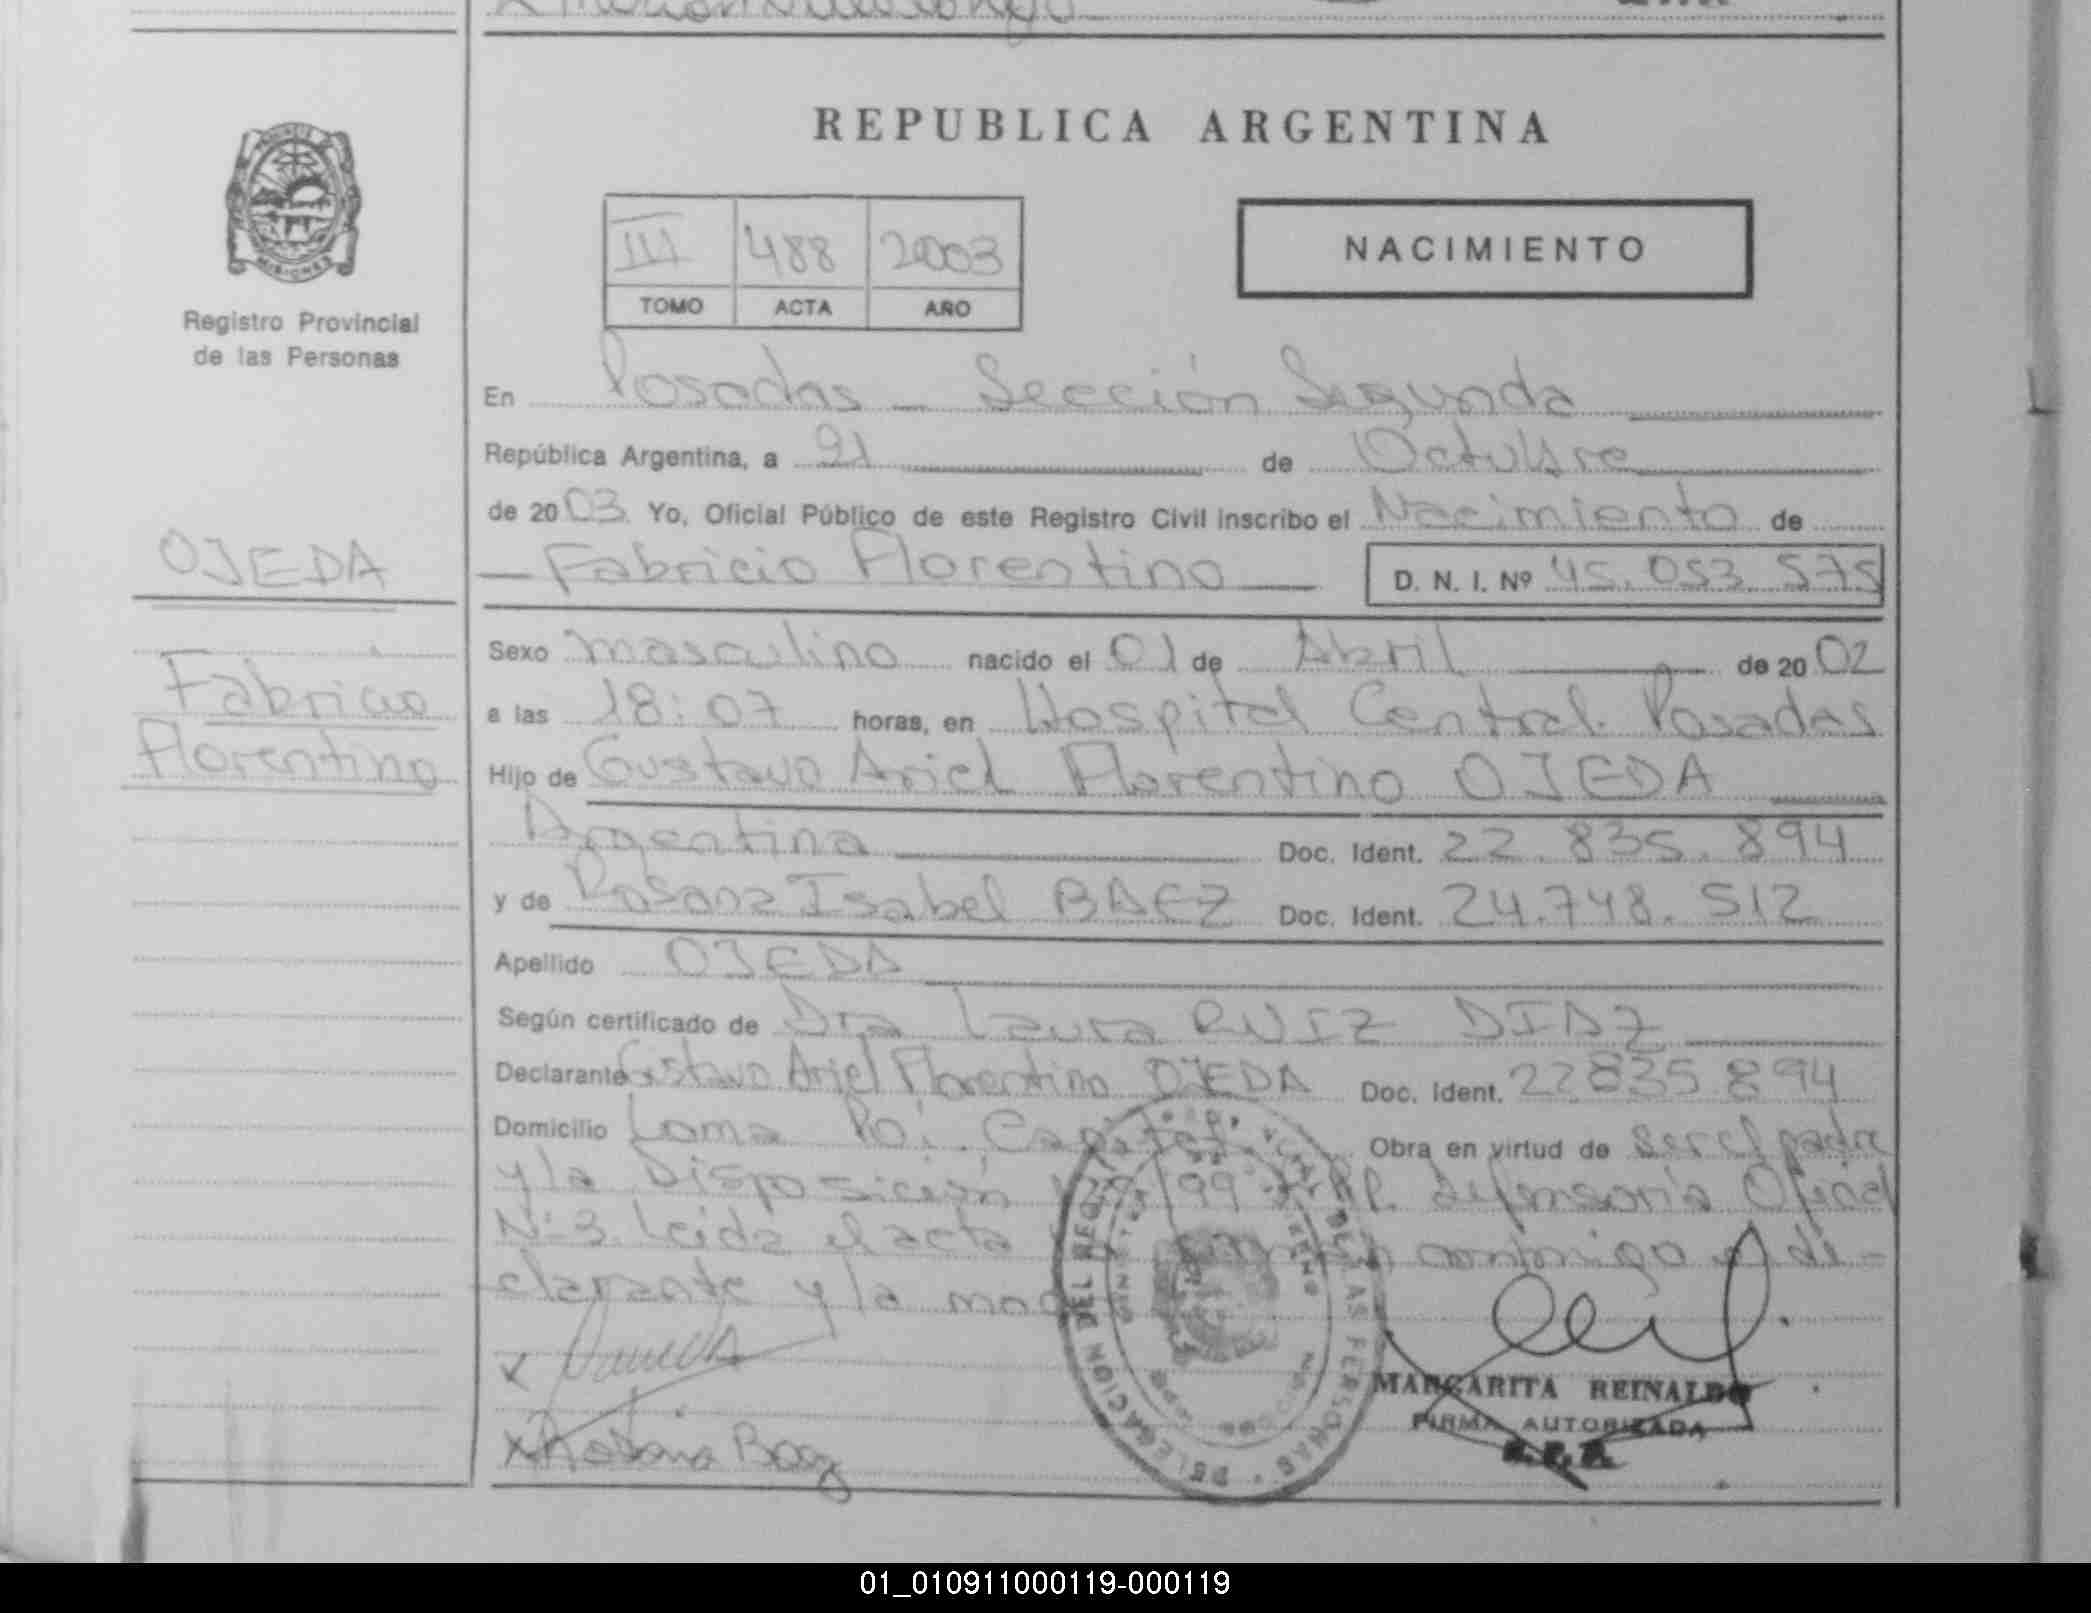 REPUBLICA ARGENTINA
MISIONES
Registro Provincial
de las Personas
III 488 2003
TOMO ACTA AÑO
NACIMIENTO
En Posadas - Sección Segunda
República Argentina, a 21 de Octubre
de 2003. Yo, Oficial Público de este Registro Civil inscribo el Nacimiento de
OJEDA
Fabricio Florentino D. N. I. Nº 45.053.575
Fabricio
Florentino
Sexo masculino nacido el 01 de Abril de 2002
a las 18:07 horas, en Hospital Central. Posadas
Hijo de Gustavo Ariel Florentino OJEDA
Argentina Doc. Ident. 22.835.894
y de Rosana Isabel BAEZ Doc. Ident. 24.748.512
Apellido OJEDA
Según certificado de Dra Laura RUIZ DIAZ
Declarante Gustavo Ariel Florentino OJEDA Doc. Ident. 22835.894
Domicilio Loma Obra en virtud de ser el padre
y la Disposición /99 defensoría Oficial
Nº 3. Leida el acta conmigo el de-
clarante y la
x Rosana Baez
DELEGACION DEL REG DE LAS PERSONAS
MARGARITA REINALDO
FIRMA AUTORIZADA
01_010911000119-000119